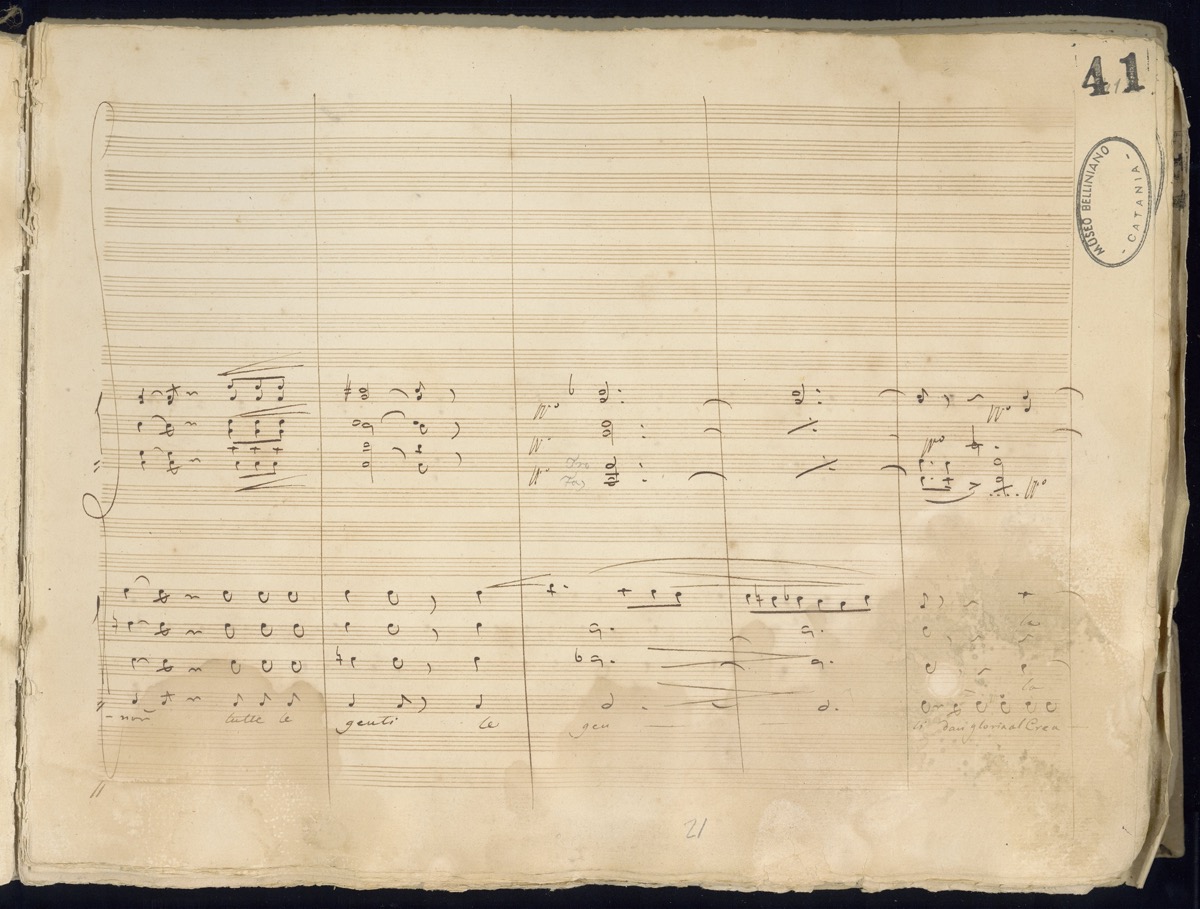 41
MUSEO BELLINIANO
- CATANIA -
tutte le genti le gen
ti dan gloria al Crea
21